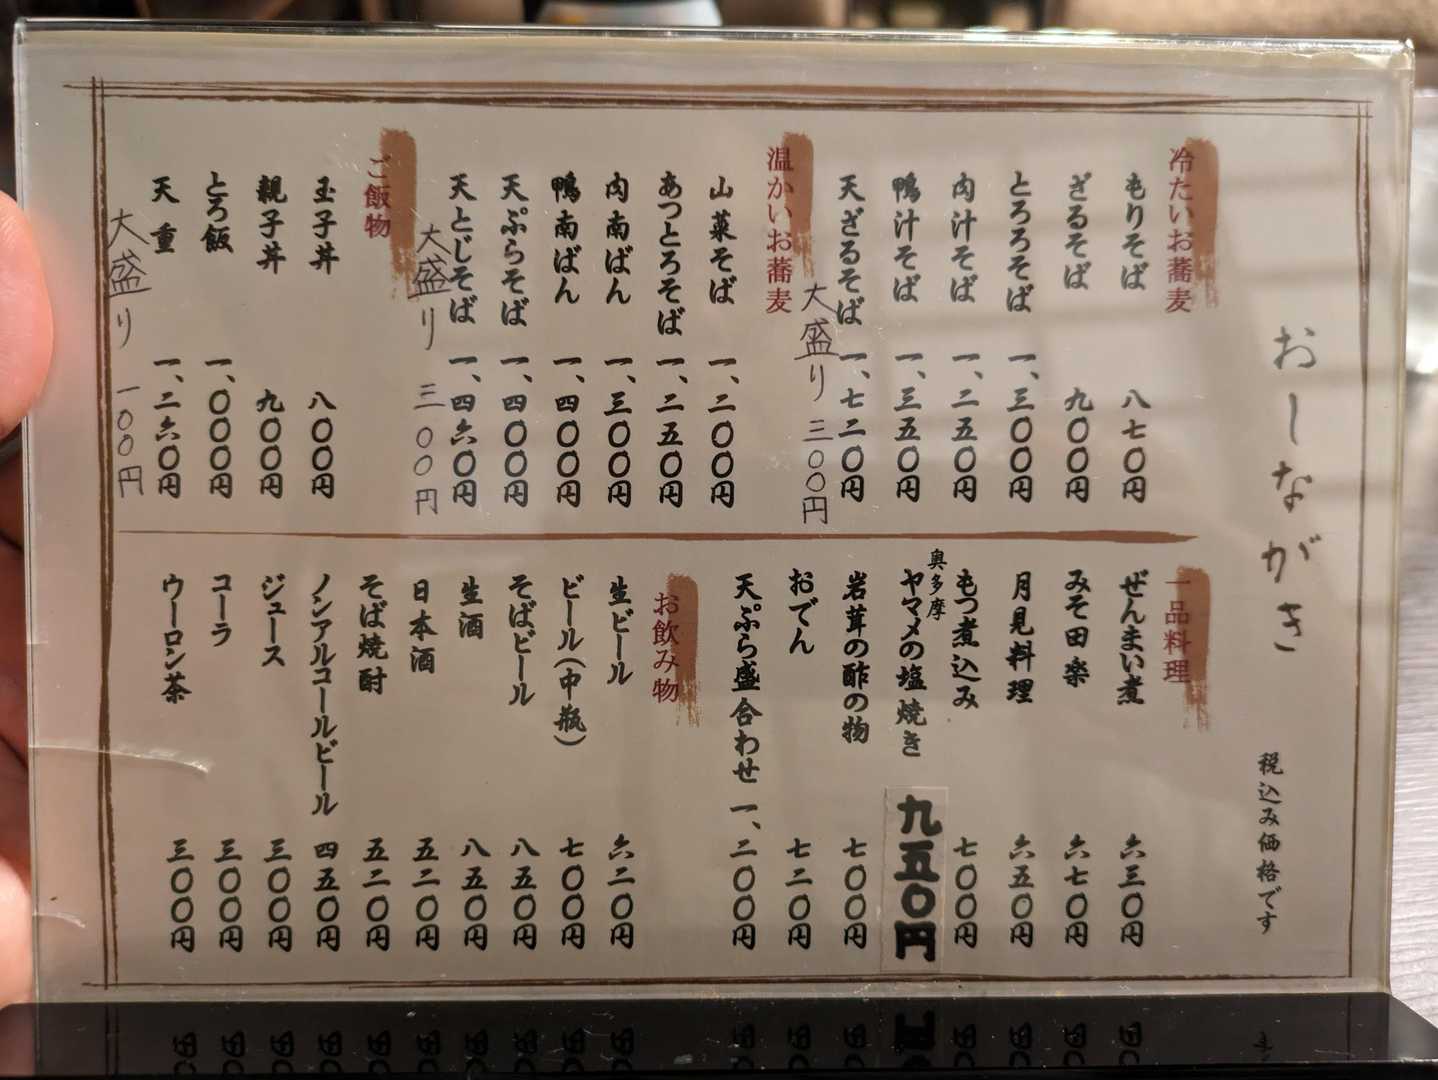 おしながき
税込み価格です
冷たいお蕎麦
もりそば 八七〇円
ざるそば 九〇〇円
とろろそば 一、三〇〇円
肉汁そば 一、二五〇円
鴨汁そば 一、三五〇円
天ざるそば 一、七二〇円
大盛り 三〇〇円
温かいお蕎麦
山菜そば 一、二〇〇円
あつとろそば 一、二五〇円
肉南ばん 一、三〇〇円
鴨南ばん 一、四〇〇円
天ぷらそば 一、四〇〇円
天とじそば 一、四六〇円
大盛り 三〇〇円
ご飯物
玉子丼 八〇〇円
親子丼 九〇〇円
とろ飯 一、〇〇〇円
天重 一、二六〇円
大盛り 一〇〇円
一品料理
ぜんまい煮 六三〇円
みそ田楽 六七〇円
月見料理 六五〇円
もつ煮込み 七〇〇円
奥多摩
ヤマメの塩焼き 九五〇円
岩茸の酢の物 七〇〇円
おでん 七二〇円
天ぷら盛合わせ 一、二〇〇円
お飲み物
生ビール 六二〇円
ビール(中瓶) 七〇〇円
そばビール 八五〇円
生酒 八五〇円
日本酒 五二〇円
そば焼酎 五二〇円
ノンアルコールビール 四五〇円
ジュース 三〇〇円
コーラ 三〇〇円
ウーロン茶 三〇〇円